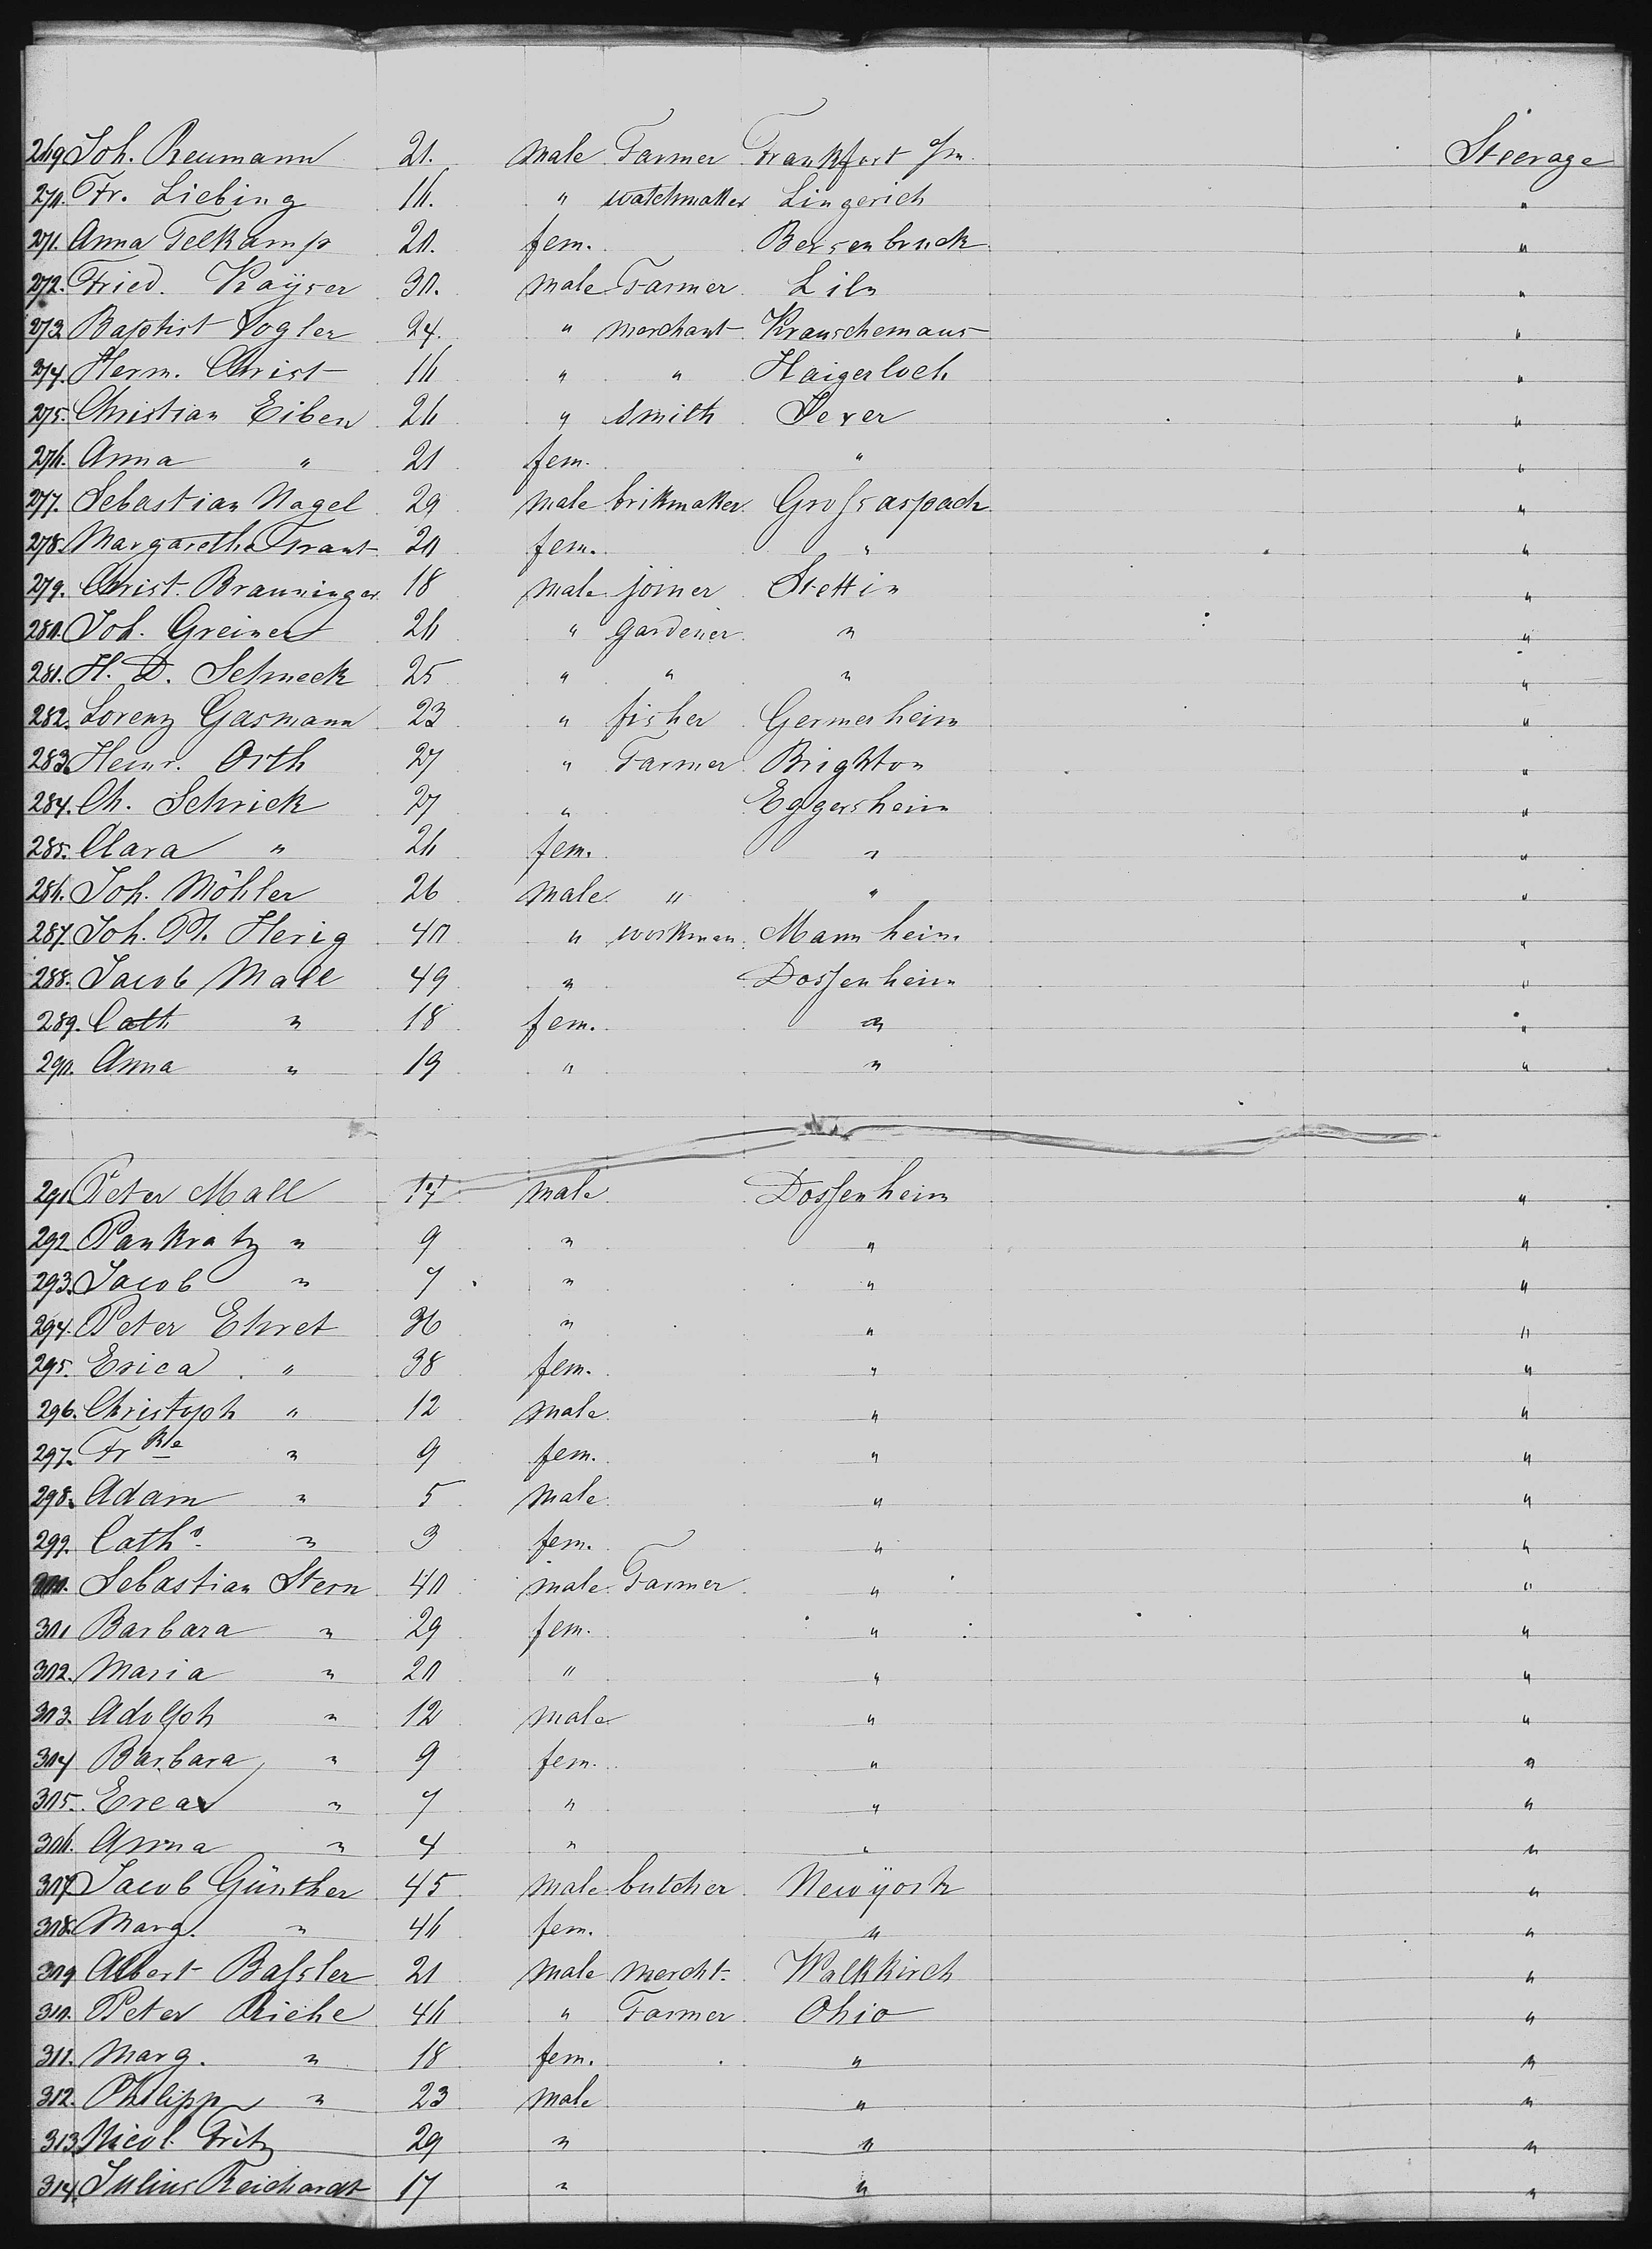 269 Joh. Reumann 21. male Farmer Frankfort a/m. Steerage
270. Fr. Liebing 16. " watchmaker Lingerich "
271. Anna Telkamp 20. fem. Bersenbruck "
272. Fried. Kayser 30. male Farmer Liln "
273 Baptist Vogler 24. " merchant Krauschemaus "
274. Herm. Christ 16 " " Haigerloch "
275. Christian Eiben 26 " smith Jever "
276. Anna " 21 fem. " "
277. Sebastian Nagel 29 male brikmaker Grossaspach "
278. Margaretha Trant 20 fem. " "
279. Christ. Brauninger 18 male joiner Stettin "
280. Joh. Greiner 26 " gardener " "
281. H. D. Schneck 25 " " " "
282. Lorenz Gasmann 23 " fisher Germerheim "
283. Heinr. Orth 27 " Farmer Brighton "
284. Ch. Schrick 27 " Eggersheim "
285. Clara " 26 fem. " "
286. Joh. Möhler 26 male " " "
287. Joh. Pt. Herig 40 " workman Mannheim "
288. Jacob Mall 49 " Dossenheim "
289. Cath " 18 fem. " "
290. Anna " 19 " " "
291 Peter Mall 17 male Dossenheim "
292 Pankratz " 9 " " "
293. Jacob " 7 " " "
294. Peter Ehret 36 " " "
295. Erica " 38 fem. " "
296. Christoph " 12 male " "
297. Fr ke " 9 fem. " "
298. Adam " 5 male " "
299. Cath a " 3 fem. " "
300. Sebastian Stern 40 male Farmer " "
301 Barbara " 29 fem. " "
302. Maria " 20 " " "
303. Adolph " 12 male " "
304 Barbara " 9 fem. " "
305. " 7 " " "
306. Anna " 4 " " "
307 Jacob Günther 45 male butcher Newyork "
308. Marg. " 46 fem. " "
309 Albert Bassler 21 male mercht. Walkkirch "
310. Peter Riehe 46 " Farmer Ohio "
311. Marg. " 18 fem. " "
312. Philipp " 23 male " "
313. Nicol. Fritz 29 " " "
314. Julius Reichardt 17 " " "